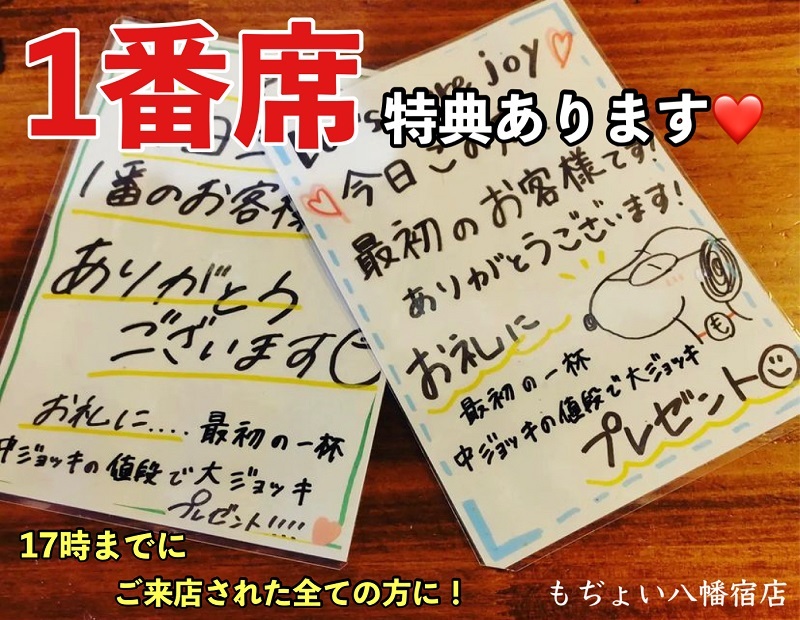 1番席
特典あります❤
1番のお客様
ありがとう
ございます
お礼に....
最初の一杯
中ジョッキの値段で大ジョッキ
プレゼント!!!!
joy
今日この
最初のお客様です!
ありがとうございます!
お礼に
最初の一杯
中ジョッキの値段で大ジョッキ
プレゼント
も
17時までに
ご来店された全ての方に!
もぢょい八幡宿店